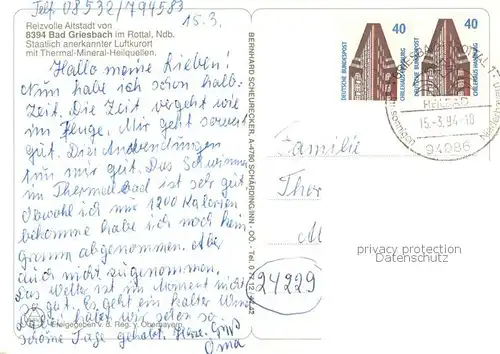 Telf. 08532/794583
15.3.
Reizvolle Altstadt von
8394 Bad Griesbach im Rottal, Ndb.
Staatlich anerkannter Luftkurort
mit Thermal-Mineral-Heilquellen.
Hallo meine Lieben!
Nun habe ich schon halb-
zeit. Die Zeit vergeht wie
im Fluge. Mir geht soweit
gut. Die Anwendungen
tun mir gut. Das Schwimmen
im Thermalbad ist sehr gut.
Obwohl ich nur 1200 Kalorien
bekomme habe ich noch kein
gramm abgenommen. Aber
auch nicht zugenommen.
Das Wetter ist im Moment nicht
so gut. Es geht ein kalter Wind
Dabei hatten wir schon so
schöne Tage gehabt. Herzl. Grüß
Oma
Freigegeben v. d. Reg. v. Oberbayern
BERNHARD SCHEURECKER, A-4780 SCHÄRDING/INN - OÖ. - Tel. 0 77 12
DEUTSCHE BUNDESPOST
40
CHILEHAUS HAMBURG
DEUTSCHE BUNDESPOST
40
HEILBAD
15.-3.94-10
94086
Familie
Ther
24229
privacy protection
Datenschutz